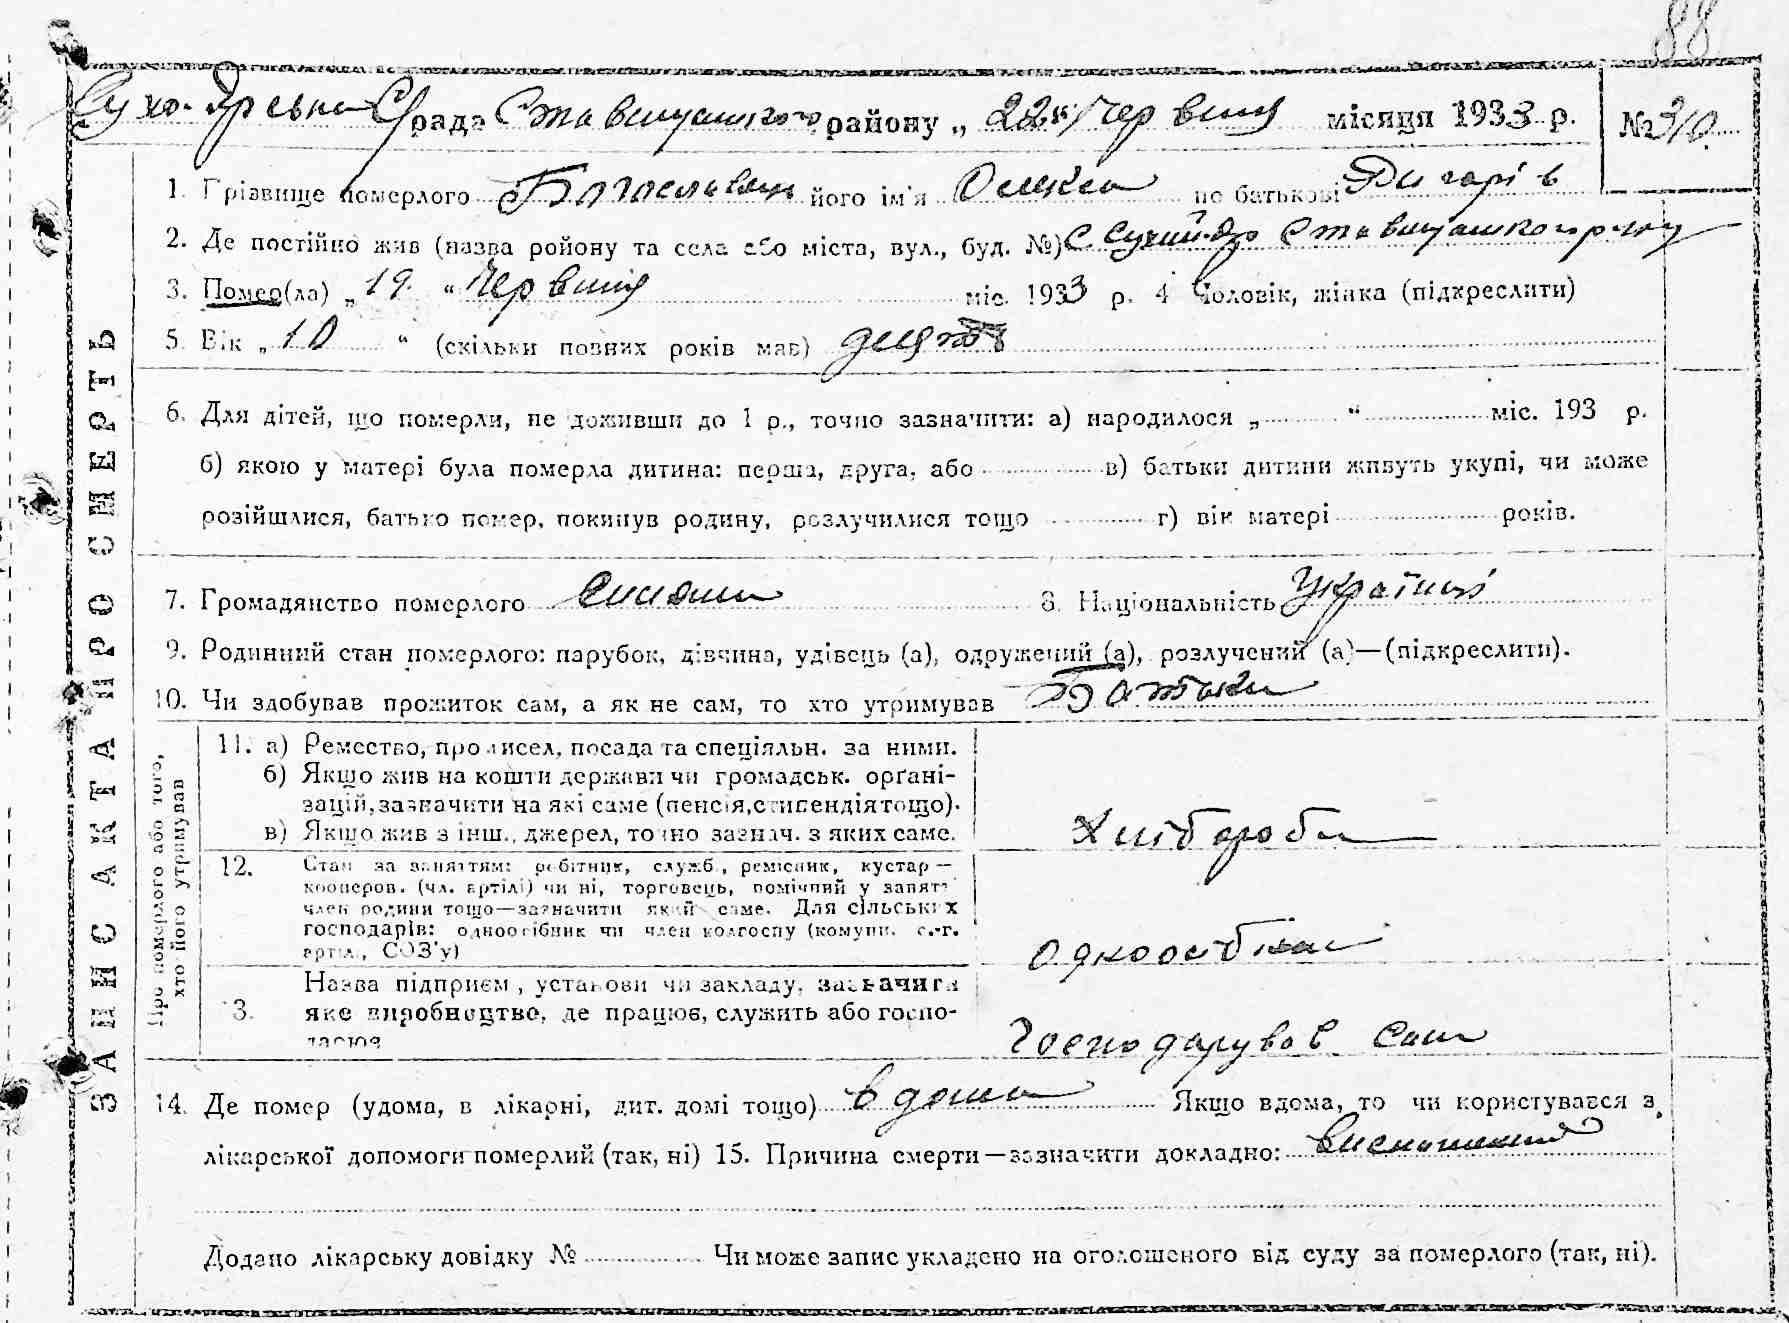 88
Сухо-Ярська С/рада Ставищанського району „ 22 " Червня місяця 1933 р. № 310
1. Прізвище померлого його ім'я Олекса по батькові
2. Де постійно жив (назва ройону та села або міста, вул., буд. №) С Сухий-Яр Ставищанського р-ну
3. Помер(ла) „ 19 " Червня міс. 1933 р. 4 Чоловік, жінка (підкреслити)
5. Вік „ 10 " (скільки повних років мав) десять
6. Для дітей, що померли, не доживши до 1 р., точно зазначити: а) народилося „ " міс. 193 р.
б) якою у матері була померла дитина: перша, друга, або в) батьки дитини живуть укупі, чи може
розійшлися, батько помер, покинув родину, розлучилися тощо г) вік матері років.
7. Громадянство померлого 8. Національність
9. Родинний стан померлого: парубок, дівчина, удівець (а), одружений (а), розлучений (а)—(підкреслити).
10. Чи здобував прожиток сам, а як не сам, то хто утримував Батьки
ЗАПИС АКТА ПРО СМЕРТЬ
Про померлого або того, хто його утримував
11. а) Ремество, промисел, посада та спеціяльн. за ними.
б) Якщо жив на кошти держави чи громадськ. орґані-
зацій, зазначити на які саме (пенсія, стипендія тощо).
в) Якщо жив з інш., джерел, точно зазнач. з яких саме.
Хлібороби
12. Стан за заняттям: робітник, служб., ремісник, кустар —
кооперов. (чл. артілі) чи ні, торговець, помічний у занятт.
член родини тощо—зазначити який саме. Для сільських
господарів: одноосібник чи член колгоспу (комуни, с.-г.
артіл., СОЗ'у)
13. Назва підприєм, установи чи закладу, зазначити
яке виробництво, де працює, служить або госпо-
дарює
Господарував сам
14. Де помер (удома, в лікарні, дит. домі тощо) в дома Якщо вдома, то чи користувався з
лікарської допомоги померлий (так, ні) 15. Причина смерти—зазначити докладно: виснаження
Додано лікарську довідку № Чи може запис укладено на оголошеного від суду за померлого (так, ні).